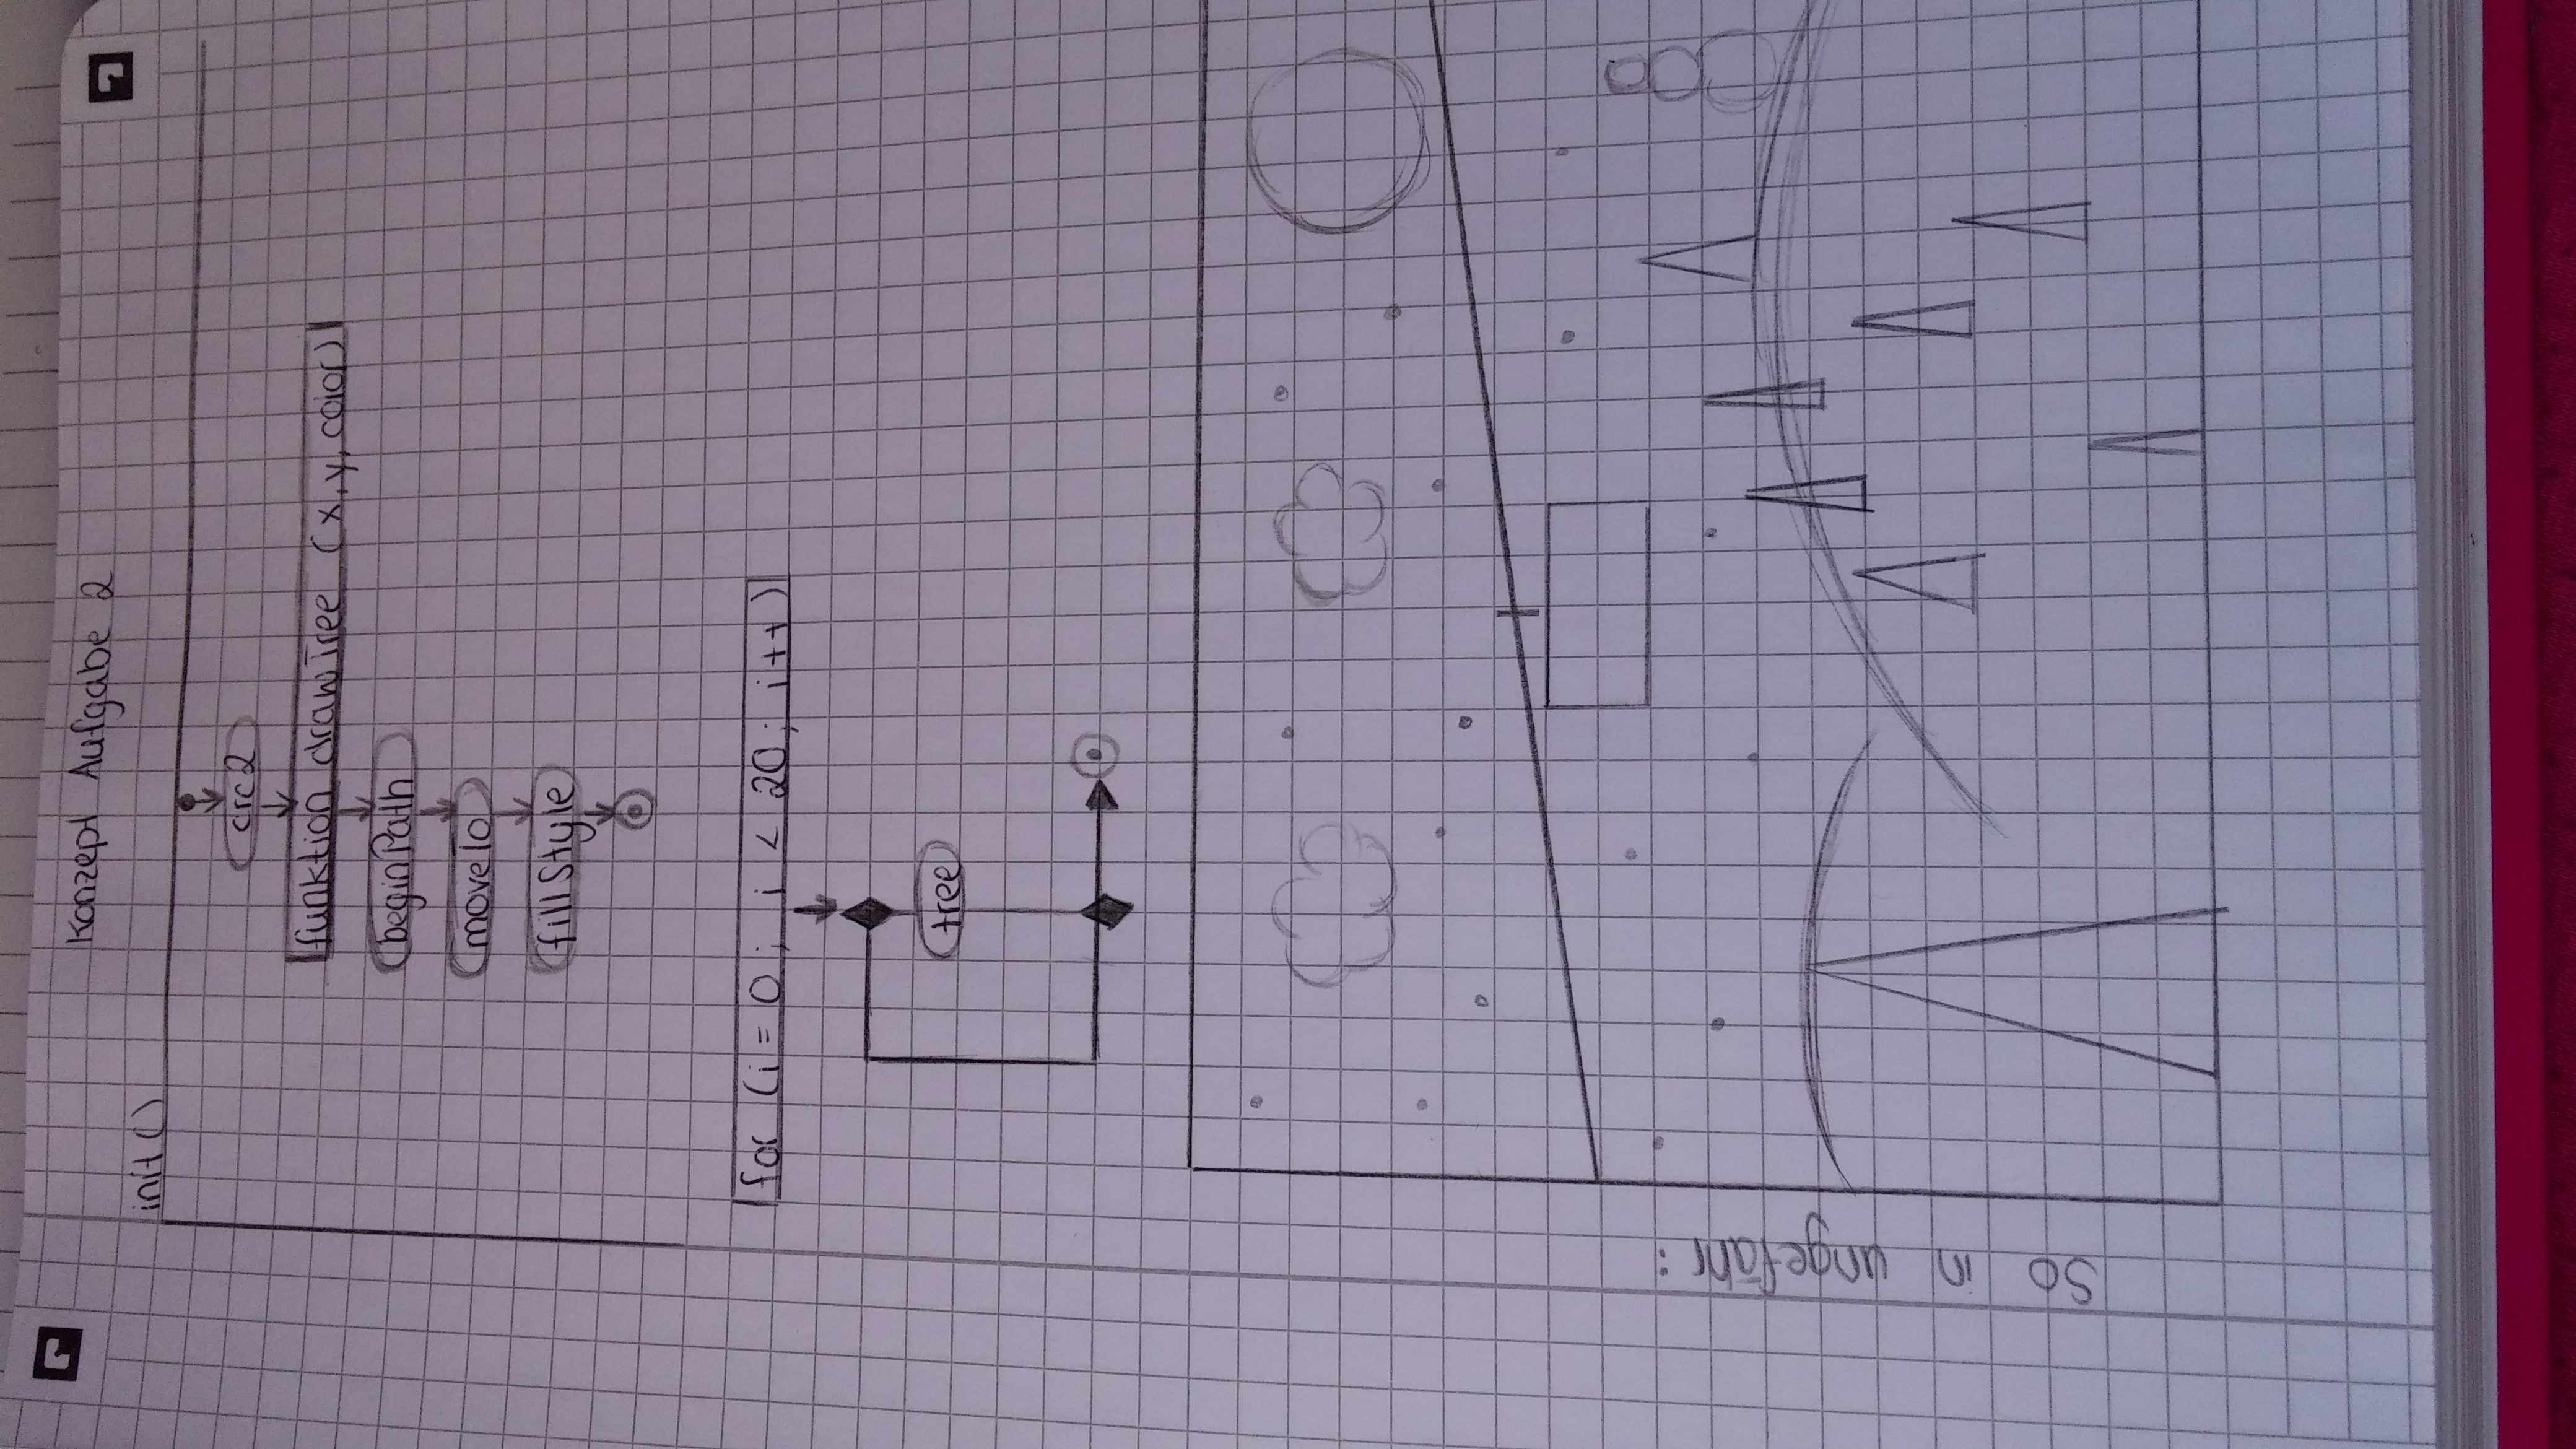 Konzept Aufgabe 2
init()
crc2
funktion drawTree (x, y, color)
beginPath
moveTo
fillStyle
for (i = 0; i < 20; i++)
tree
So in ungefähr: